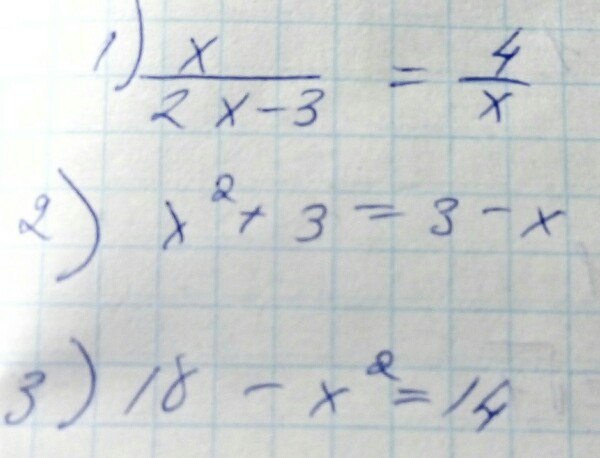 1) x/(2x-3) = 4/x
2) x²+3=3-x
3) 18 - x²=14